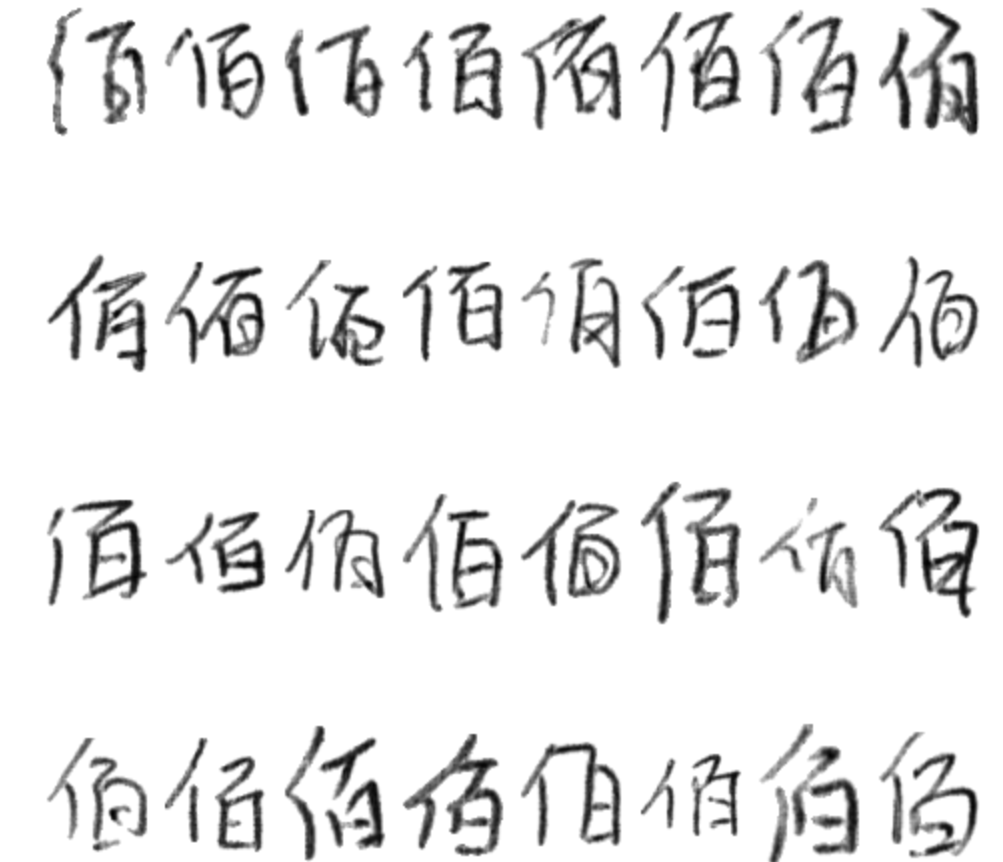 佰佰佰佰佰佰佰佰
佰佰佰佰佰佰佰佰
佰佰佰佰佰佰佰佰
佰佰佰佰佰佰佰佰